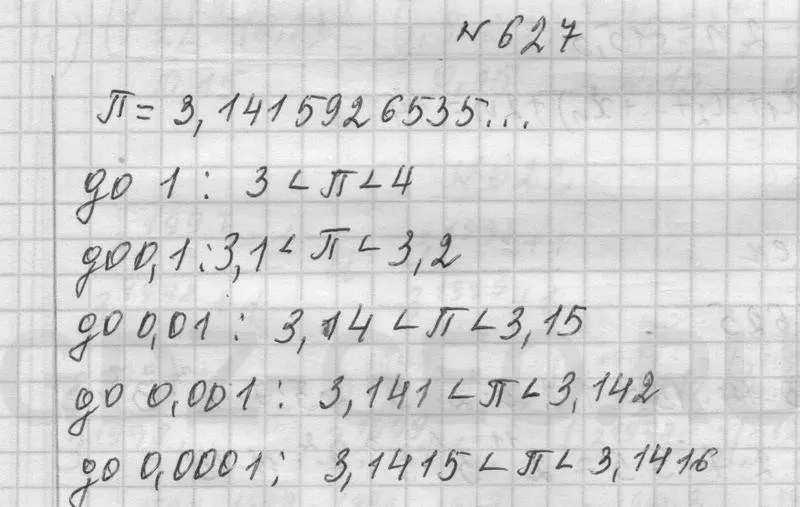 № 627
П = 3,1415926535...
до 1 : 3 < П < 4
до 0,1 : 3,1 < П < 3,2
до 0,01 : 3,14 < П < 3,15
до 0,001 : 3,141 < П < 3,142
до 0,0001 : 3,1415 < П < 3,1416